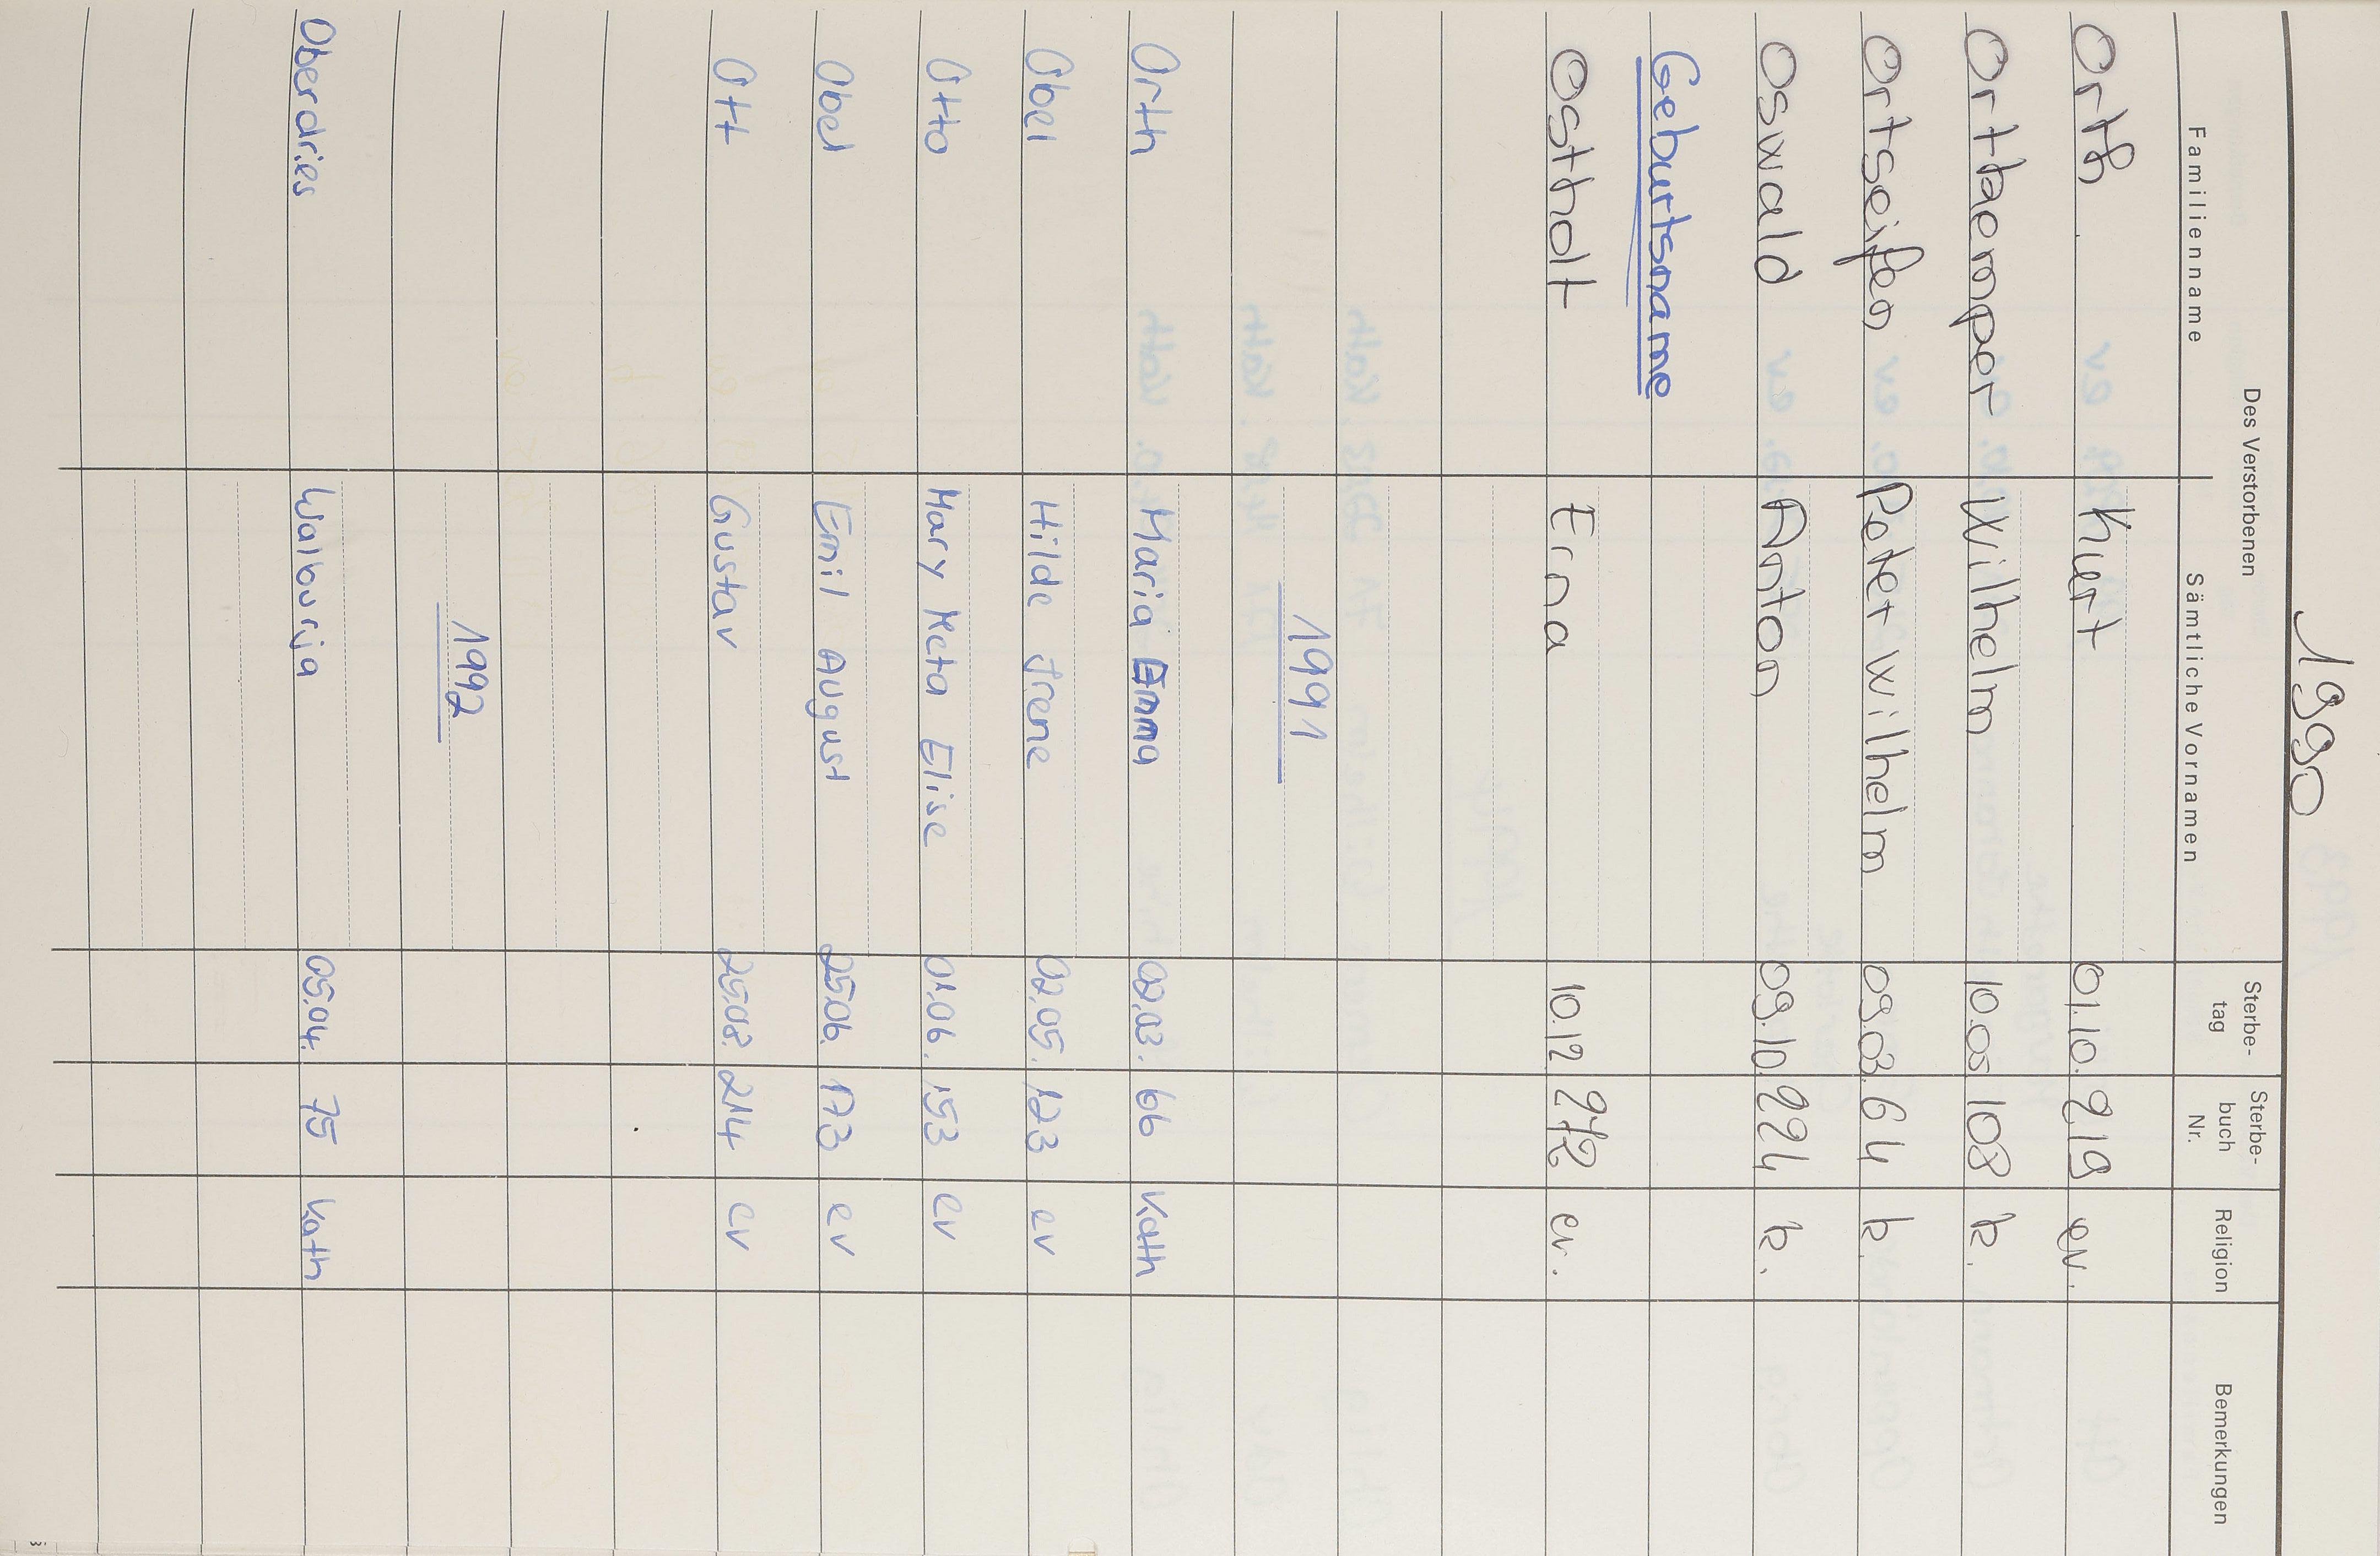 1990
Des Verstorbenen
Familienname Sämtliche Vornamen Sterbe-tag Sterbe-buch Nr. Religion Bemerkungen
Orth Kurt 01.10. 219 ev.
Orthaemper Wilhelm 10.05 108 k.
Ortseifen Peter Wilhelm 09.03. 64 k.
Oswald Anton 09.10. 224 k.
Geburtsname
Ostholt Erna 10.12. 272 ev.
1991
Orth Maria Emma 02.03. 66 Kath
Obel Hilde Irene 02.05. 123 ev
Otto Mary Meta Elise 01.06. 153 ev
Obel Emil August 25.06. 173 ev
Ott Gustav 25.08. 214 ev
1992
Oberdries Walburja 05.04. 75 Kath